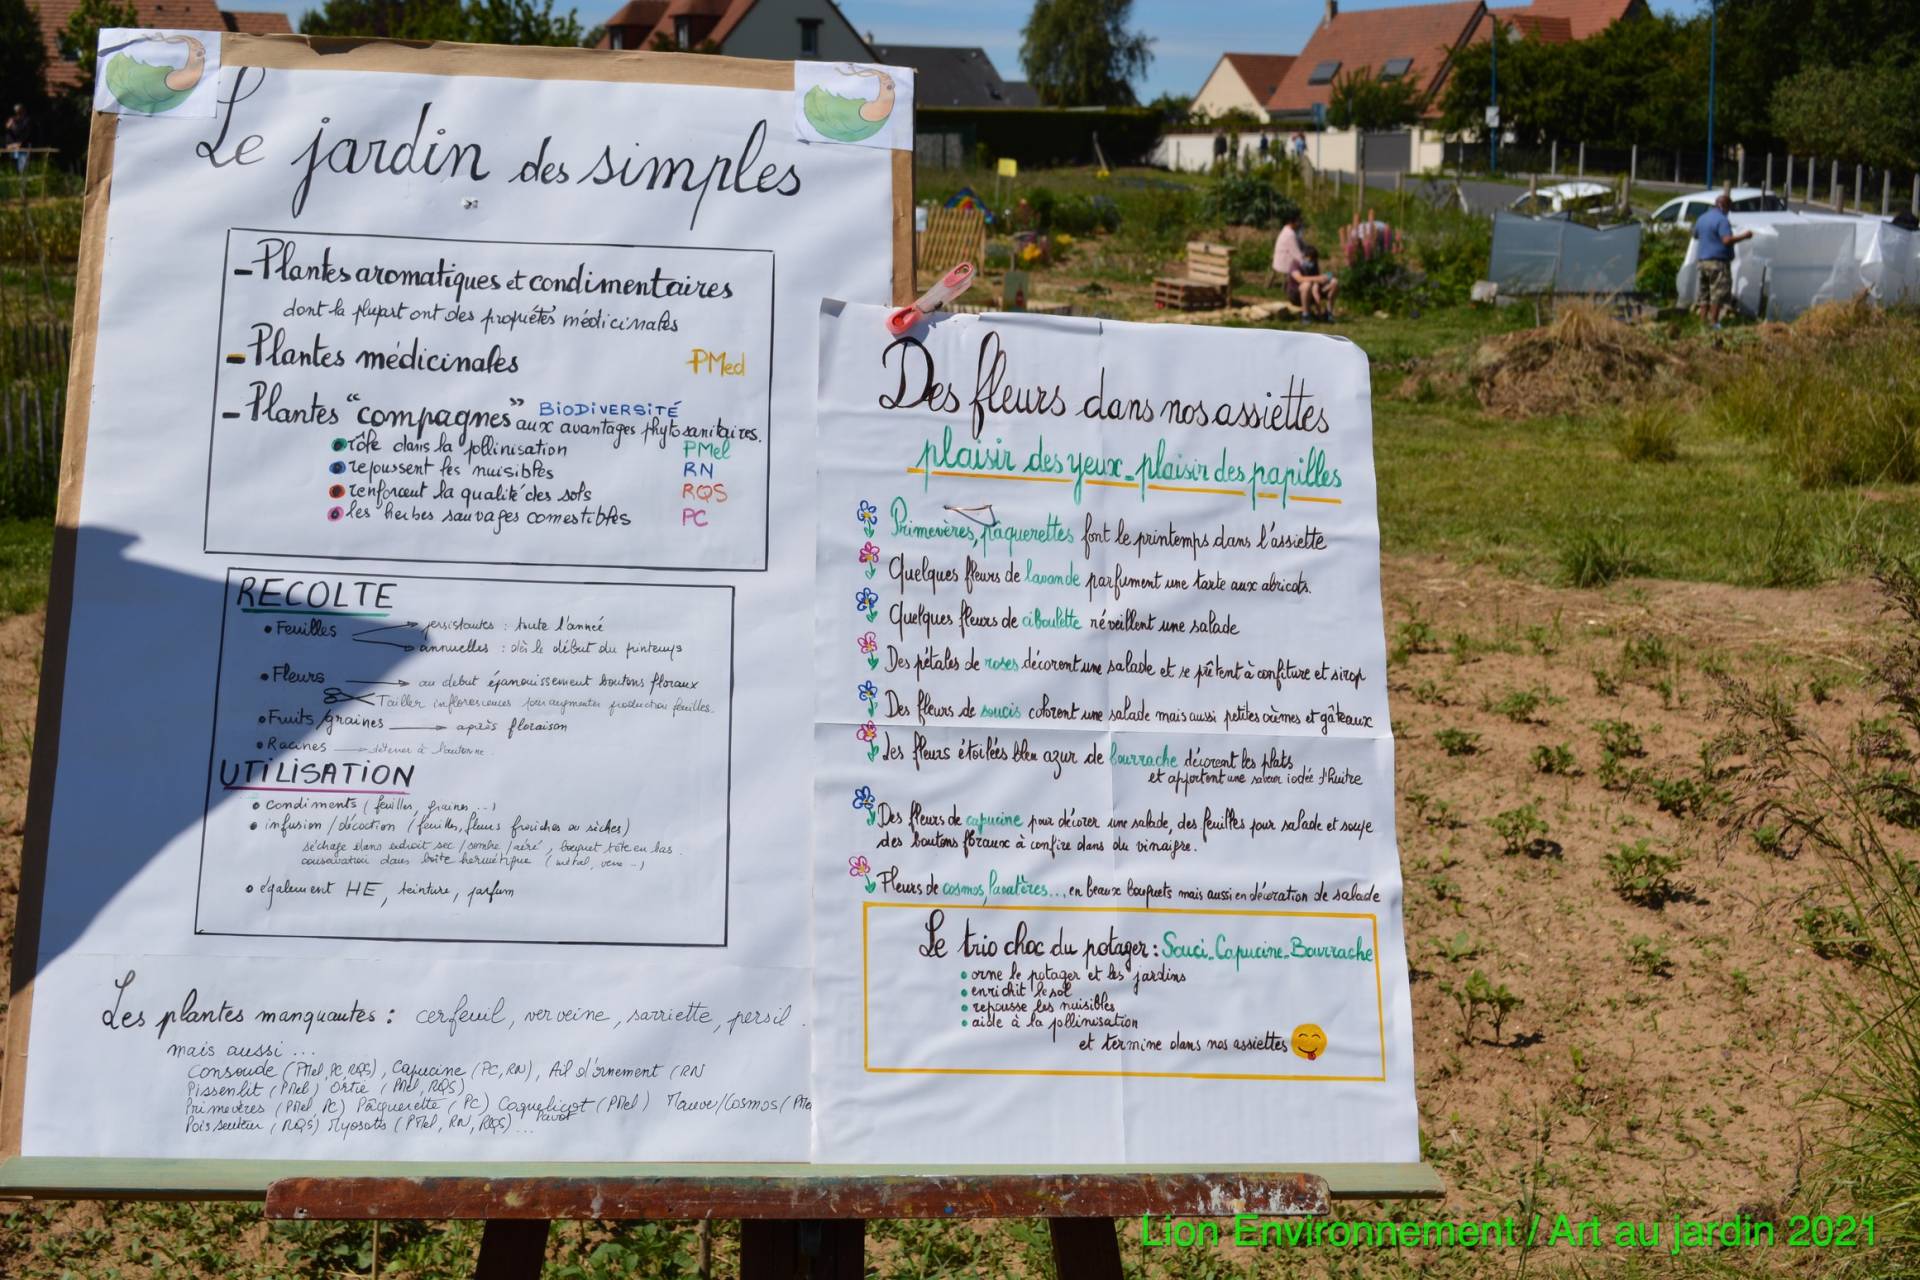 Le jardin des simples
- Plantes aromatiques et condimentaires
dont la plupart ont des propriétés médicinales
- Plantes médicinales PMed
- Plantes "compagnes" BIODIVERSITÉ
aux avantages phytosanitaires.
rôle dans la pollinisation PMel
repoussent les nuisibles RN
renforcent la qualité des sols RQS
les herbes sauvages comestibles PC
RECOLTE
Feuilles persistantes : toute l'année
annuelles : dès le début du printemps
Fleurs au début épanouissement boutons floraux
Tailler inflorescences pour augmenter production feuilles.
Fruits/graines après floraison
Racines déterrer à l'automne
UTILISATION
condiments (feuilles, graines ...)
infusion / décoction (feuilles, fleurs fraîches ou sèches)
séchage dans endroit sec / sombre / aéré, bouquet tête en bas.
conservation dans boîte hermétique (métal, verre ...)
également HE, teinture, parfum
Les plantes manquantes : cerfeuil, verveine, sarriette, persil.
mais aussi ...
Consoude (PMel, PC, RQS), Capucine (PC, RN), Ail d'ornement (RN
Pissenlit (PMel) Ortie (PMel, RQS)
Primevères (PMel, PC) Pâquerette (PC) Coquelicot (PMel) Mauve/Cosmos (PMe
Pavot
Pois senteur (RQS) Myosotis (PMel, RN, RQS) ...
Des fleurs dans nos assiettes
plaisir des yeux - plaisir des papilles
Primevères, pâquerettes font le printemps dans l'assiette
Quelques fleurs de lavande parfument une tarte aux abricots.
Quelques fleurs de ciboulette réveillent une salade
Des pétales de roses décorent une salade et se prêtent à confiture et sirop
Des fleurs de soucis colorent une salade mais aussi petites crèmes et gâteaux
Les fleurs étoilées bleu azur de bourrache décorent les plats
et apportent une saveur iodée d'huitre
Des fleurs de capucine pour décorer une salade, des feuilles pour salade et soupe
des boutons floraux à confire dans du vinaigre.
Fleurs de cosmos, lavatères... en beaux bouquets mais aussi en décoration de salade
Le trio choc du potager : Souci - Capucine - Bourrache
orne le potager et les jardins
enrichit le sol
repousse les nuisibles
aide à la pollinisation
et termine dans nos assiettes
Lion Environnement / Art au jardin 2021